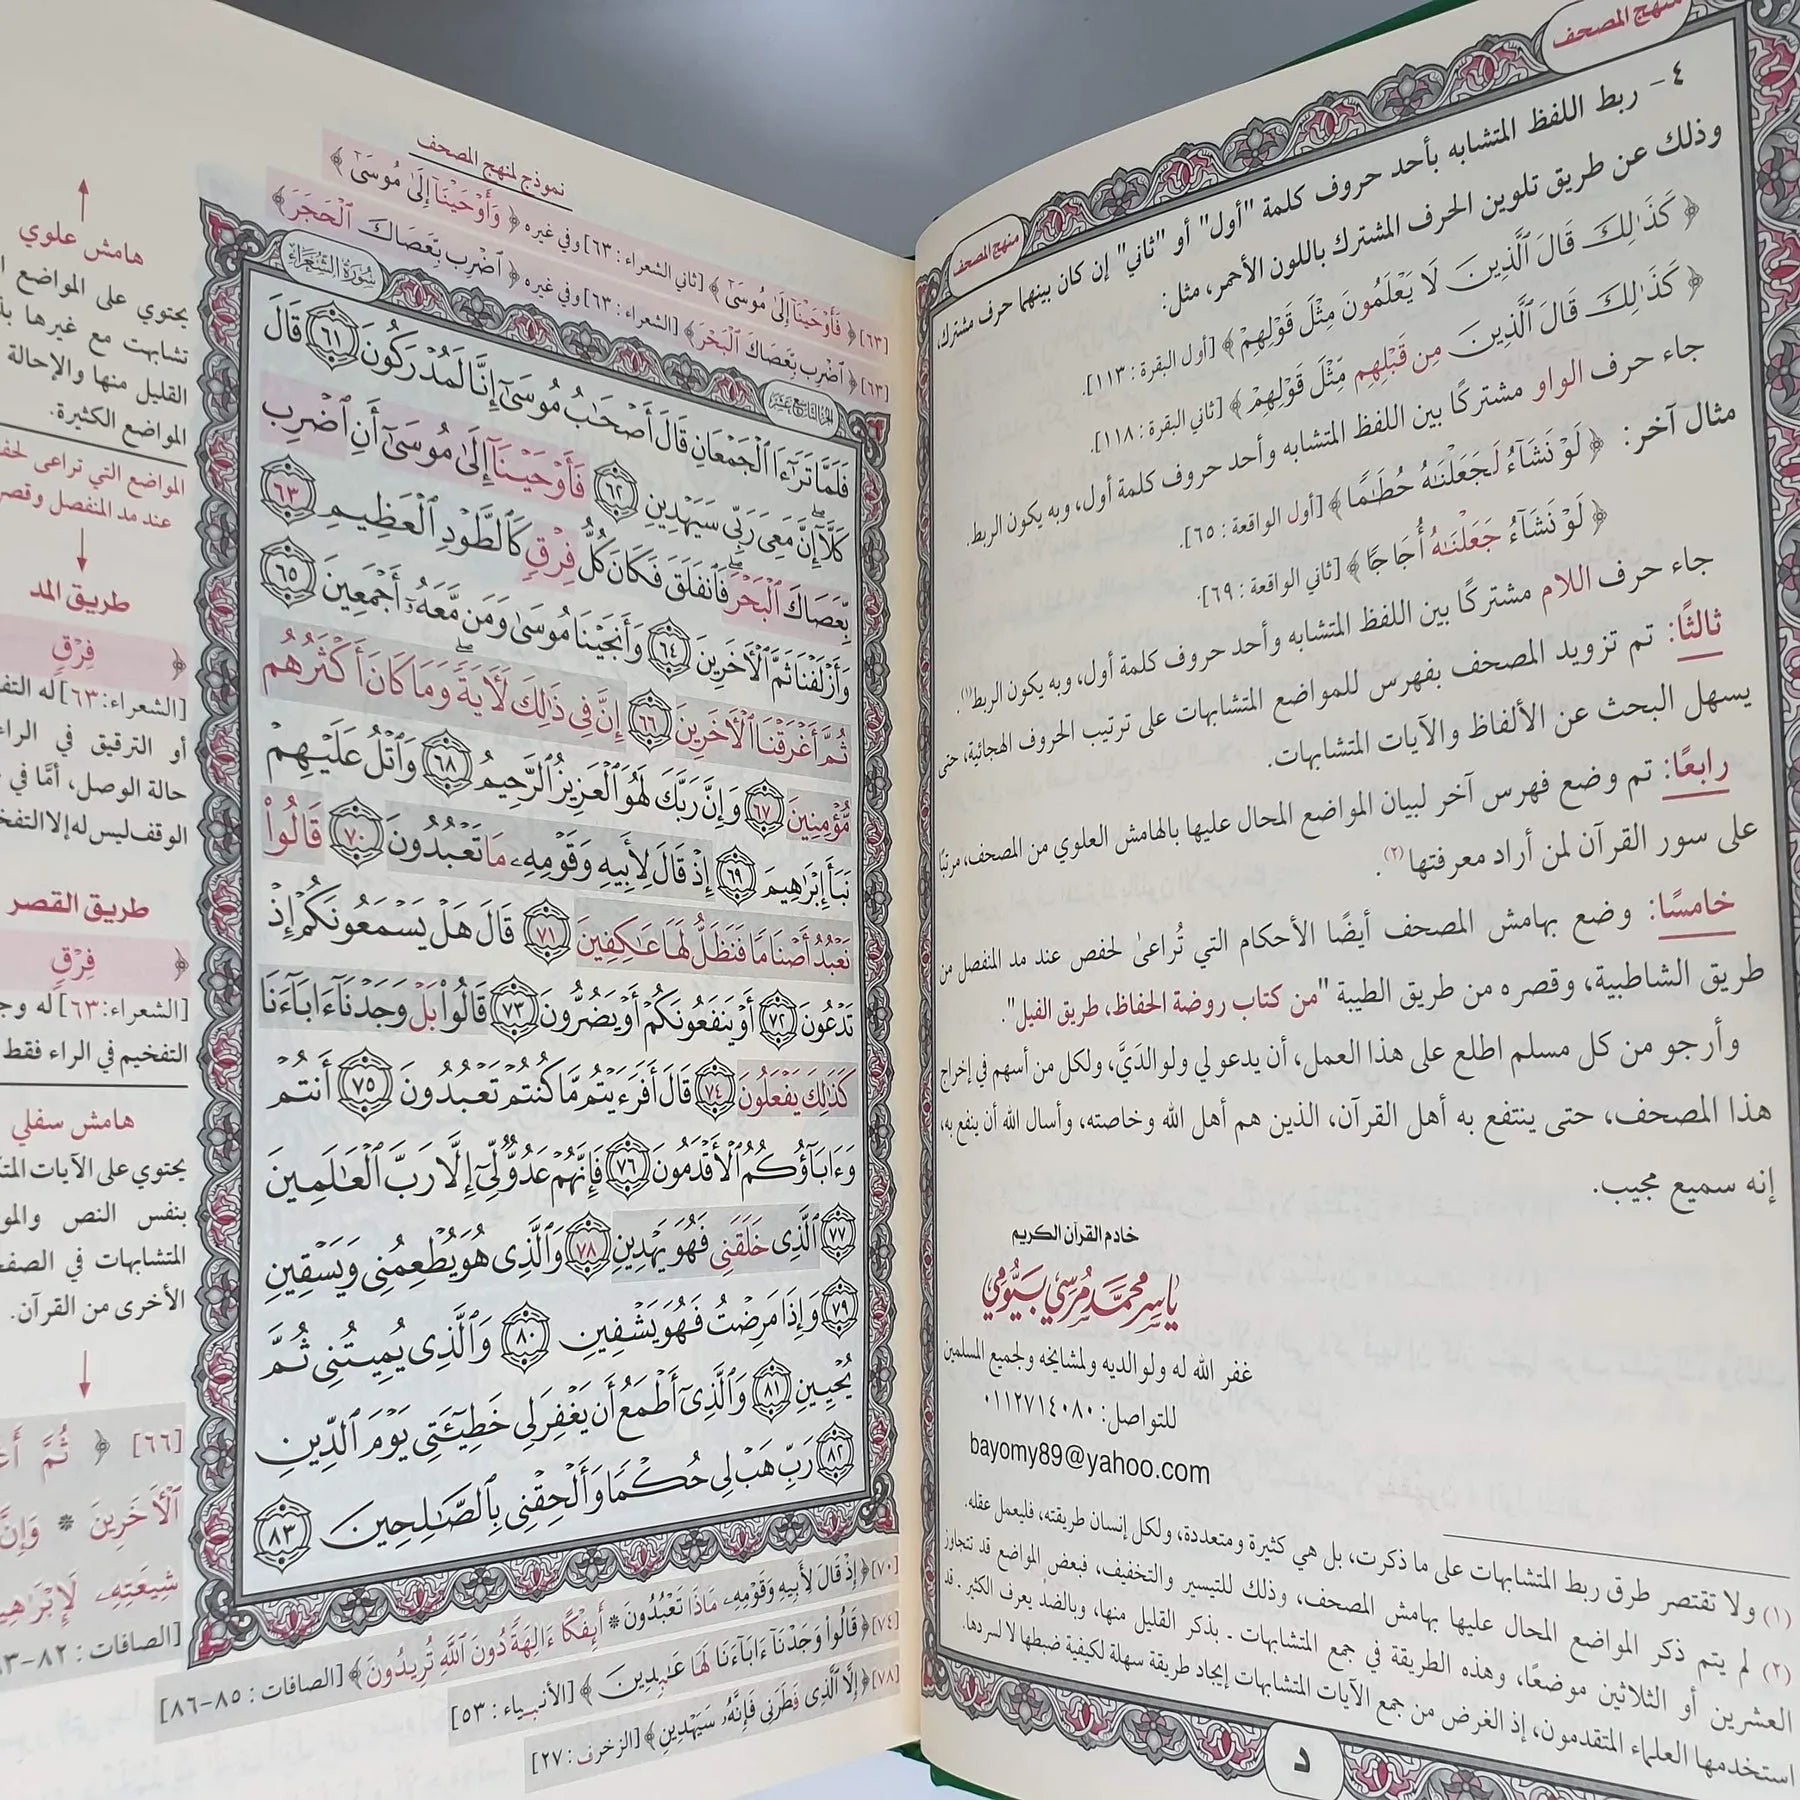 منهج المصحف
منهج المصحف
٤- ربط اللفظ المتشابه بأحد حروف كلمة "أول" أو "ثاني" إن كان بينهما حرف مشترك،
وذلك عن طريق تلوين الحرف المشترك باللون الأحمر، مثل:
﴿ كَذَٰلِكَ قَالَ ٱلَّذِينَ لَا يَعْلَمُونَ مِثْلَ قَوْلِهِمْ ﴾ [أول البقرة : ١١٣].
﴿ كَذَٰلِكَ قَالَ ٱلَّذِينَ مِن قَبْلِهِم مِّثْلَ قَوْلِهِمْ ﴾ [ثاني البقرة : ١١٨].
جاء حرف الواو مشتركًا بين اللفظ المتشابه وأحد حروف كلمة أول، وبه يكون الربط.
مثال آخر: ﴿ لَوْ نَشَآءُ لَجَعَلْنَٰهُ حُطَٰمًا ﴾ [أول الواقعة : ٦٥].
﴿ لَوْ نَشَآءُ جَعَلْنَٰهُ أُجَاجًا ﴾ [ثاني الواقعة : ٦٩].
جاء حرف اللام مشتركًا بين اللفظ المتشابه وأحد حروف كلمة أول، وبه يكون الربط(١).
ثالثًا: تم تزويد المصحف بفهرس للمواضع المتشابهات على ترتيب الحروف الهجائية، حتى
يسهل البحث عن الألفاظ والآيات المتشابهات.
رابعًا: تم وضع فهرس آخر لبيان المواضع المحال عليها بالهامش العلوي من المصحف، مرتبًا
على سور القرآن لمن أراد معرفتها(٢).
خامسًا: وضع بهامش المصحف أيضًا الأحكام التي تُراعىٰ لحفص عند مد المنفصل من
طريق الشاطبية، وقصره من طريق الطيبة "من كتاب روضة الحفاظ، طريق الفيل".
وأرجو من كل مسلم اطلع على هذا العمل، أن يدعو لي ولوالدَيَّ، ولكل من أسهم في إخراج
هذا المصحف، حتى ينتفع به أهل القرآن، الذين هم أهل الله وخاصته، وأسال الله أن ينفع به،
إنه سميع مجيب.
خادم القرآن الكريم
ياسر محمد مرسي بيومي
غفر الله له ولوالديه ولمشايخه ولجميع المسلمين
للتواصل: ٠١١٢٧١٤٠٨٠
bayomy89@yahoo.com
(١) ولا تقتصر طرق ربط المتشابهات على ما ذكرت، بل هي كثيرة ومتعددة، ولكل إنسان طريقته، فليعمل عقله.
(٢) لم يتم ذكر المواضع المحال عليها بهامش المصحف، وذلك للتيسير والتخفيف، فبعض المواضع قد تتجاوز
العشرين أو الثلاثين موضعًا، وهذه الطريقة في جمع المتشابهات ـ بذكر القليل منها، وبالضد يعرف الكثير ـ قد
استخدمها العلماء المتقدمون، إذ الغرض من جمع الآيات المتشابهات إيجاد طريقة سهلة لكيفية ضبطها لا لسردها.
د
نموذج لمنهج المصحف
[٦٣] ﴿ فَأَوْحَيْنَآ إِلَىٰ مُوسَىٰٓ ﴾ [ثاني الشعراء : ٦٣] وفي غيره ﴿ وَأَوْحَيْنَآ إِلَىٰ مُوسَىٰٓ ﴾
[٦٣] ﴿ ٱضْرِب بِّعَصَاكَ ٱلْبَحْرَ ﴾ [الشعراء : ٦٣] وفي غيره ﴿ ٱضْرِب بِّعَصَاكَ ٱلْحَجَرَ ﴾
الجزء التاسع عشر
سورة الشعراء
فَلَمَّا تَرَٰٓءَا ٱلْجَمْعَانِ قَالَ أَصْحَٰبُ مُوسَىٰٓ إِنَّا لَمُدْرَكُونَ ٦١ قَالَ
كَلَّآ إِنَّ مَعِىَ رَبِّى سَيَهْدِينِ ٦٢ فَأَوْحَيْنَآ إِلَىٰ مُوسَىٰٓ أَنِ ٱضْرِب
بِّعَصَاكَ ٱلْبَحْرَ فَٱنفَلَقَ فَكَانَ كُلُّ فِرْقٍ كَٱلطَّوْدِ ٱلْعَظِيمِ ٦٣
وَأَزْلَفْنَا ثَمَّ ٱلْءَاخَرِينَ ٦٤ وَأَنجَيْنَا مُوسَىٰ وَمَن مَّعَهُۥٓ أَجْمَعِينَ ٦٥
ثُمَّ أَغْرَقْنَا ٱلْءَاخَرِينَ ٦٦ إِنَّ فِى ذَٰلِكَ لَءَايَةً وَمَا كَانَ أَكْثَرُهُم
مُّؤْمِنِينَ ٦٧ وَإِنَّ رَبَّكَ لَهُوَ ٱلْعَزِيزُ ٱلرَّحِيمُ ٦٨ وَٱتْلُ عَلَيْهِمْ
نَبَأَ إِبْرَٰهِيمَ ٦٩ إِذْ قَالَ لِأَبِيهِ وَقَوْمِهِۦ مَا تَعْبُدُونَ ٧٠ قَالُوا۟
نَعْبُدُ أَصْنَامًا فَنَظَلُّ لَهَا عَٰكِفِينَ ٧١ قَالَ هَلْ يَسْمَعُونَكُمْ إِذْ
تَدْعُونَ ٧٢ أَوْ يَنفَعُونَكُمْ أَوْ يَضُرُّونَ ٧٣ قَالُوا۟ بَلْ وَجَدْنَآ ءَابَآءَنَا
كَذَٰلِكَ يَفْعَلُونَ ٧٤ قَالَ أَفَرَءَيْتُم مَّا كُنتُمْ تَعْبُدُونَ ٧٥ أَنتُمْ
وَءَابَآؤُكُمُ ٱلْأَقْدَمُونَ ٧٦ فَإِنَّهُمْ عَدُوٌّ لِّىٓ إِلَّا رَبَّ ٱلْعَٰلَمِينَ
٧٧ ٱلَّذِى خَلَقَنِى فَهُوَ يَهْدِينِ ٧٨ وَٱلَّذِى هُوَ يُطْعِمُنِى وَيَسْقِينِ
٧٩ وَإِذَا مَرِضْتُ فَهُوَ يَشْفِينِ ٨٠ وَٱلَّذِى يُمِيتُنِى ثُمَّ
يُحْيِينِ ٨١ وَٱلَّذِىٓ أَطْمَعُ أَن يَغْفِرَ لِى خَطِيٓـَٔتِى يَوْمَ ٱلدِّينِ
٨٢ رَبِّ هَبْ لِى حُكْمًا وَأَلْحِقْنِى بِٱلصَّٰلِحِينَ ٨٣
[٧٠] ﴿ إِذْ قَالَ لِأَبِيهِ وَقَوْمِهِۦ مَاذَا تَعْبُدُونَ * أَئِفْكًا ءَالِهَةً دُونَ ٱللَّهِ تُرِيدُونَ ﴾ [الصافات : ٨٥-٨٦]
[٧٤] ﴿ قَالُوا۟ وَجَدْنَآ ءَابَآءَنَا لَهَا عَٰبِدِينَ ﴾ [الأنبياء : ٥٣]
[٧٨] ﴿ إِلَّا ٱلَّذِى فَطَرَنِى فَإِنَّهُۥ سَيَهْدِينِ ﴾ [الزخرف : ٢٧]
هامش علوي
يحتوي على المواضع
تشابهت مع غيرها
القليل منها والإحالة
المواضع الكثيرة.
المواضع التي تراعى
عند مد المنفصل
طريق المد
﴿ فِرْقٍ
[الشعراء: ٦٣] له
أو الترقيق في
حالة الوصل، أمَّا في
الوقف ليس له إلا
طريق القصر
﴿ فِرْقٍ
[الشعراء: ٦٣] له
التفخيم في الراء فقط
هامش سفلي
يحتوي على الآيات
بنفس النص
المتشابهات في
الأخرى من القرآن.
[٦٦] ﴿ ثُمَّ
ٱلْءَاخَرِينَ * وَإِنَّ
شِيعَتِهِۦ
[الصافات : ٨٢-